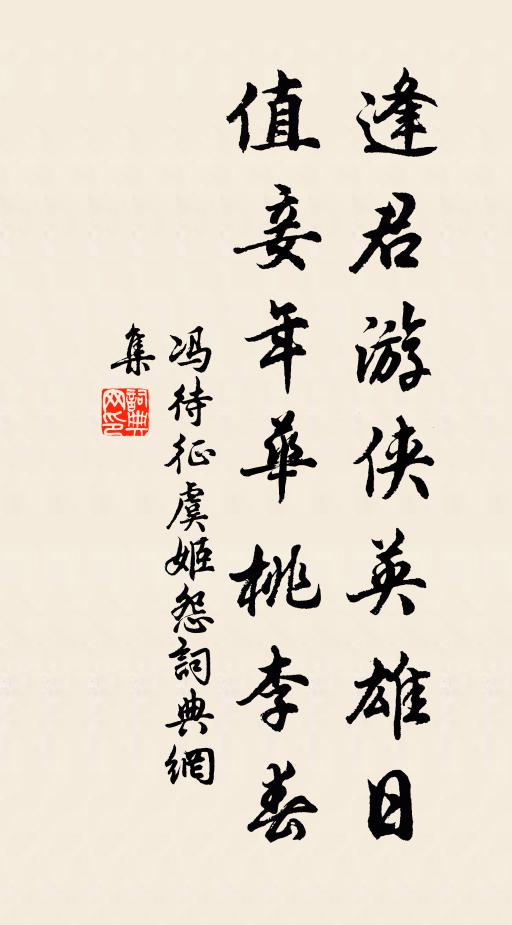 逢君游侠英雄日
值妾年華桃李春
冯待征虞姬怨詞典網
集
詞典网印